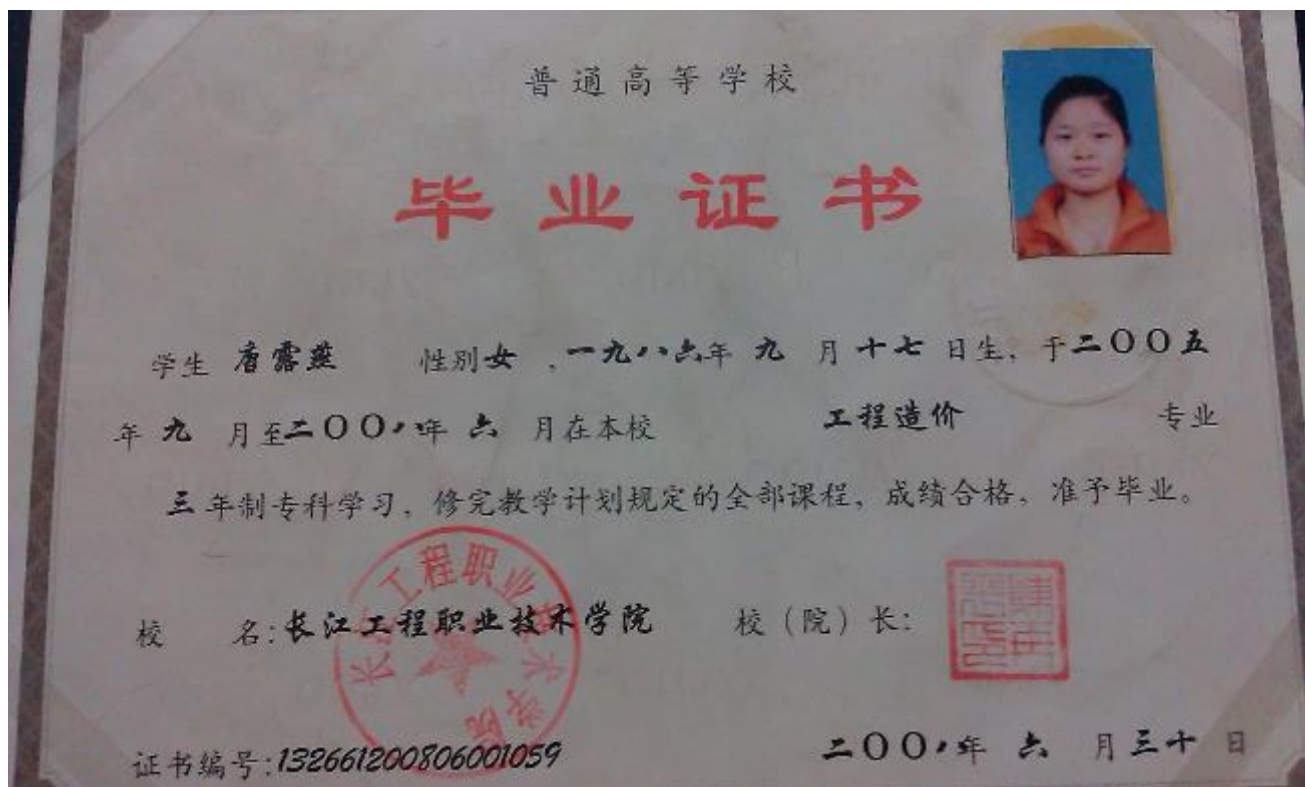 普通高等学校
毕业证书
学生 唐露燕 性别女,一九八六年 九 月 十七 日生, 于二〇〇五
年 九 月至二〇〇八年 六 月在本校 工程造价 专业
三 年制专科学习, 修完教学计划规定的全部课程, 成绩合格, 准予毕业。
校 名:长江工程职业技术学院 校(院)长:
长江工程职业技术学院
证书编号:132661200806001059 二〇〇八年 六 月三十 日